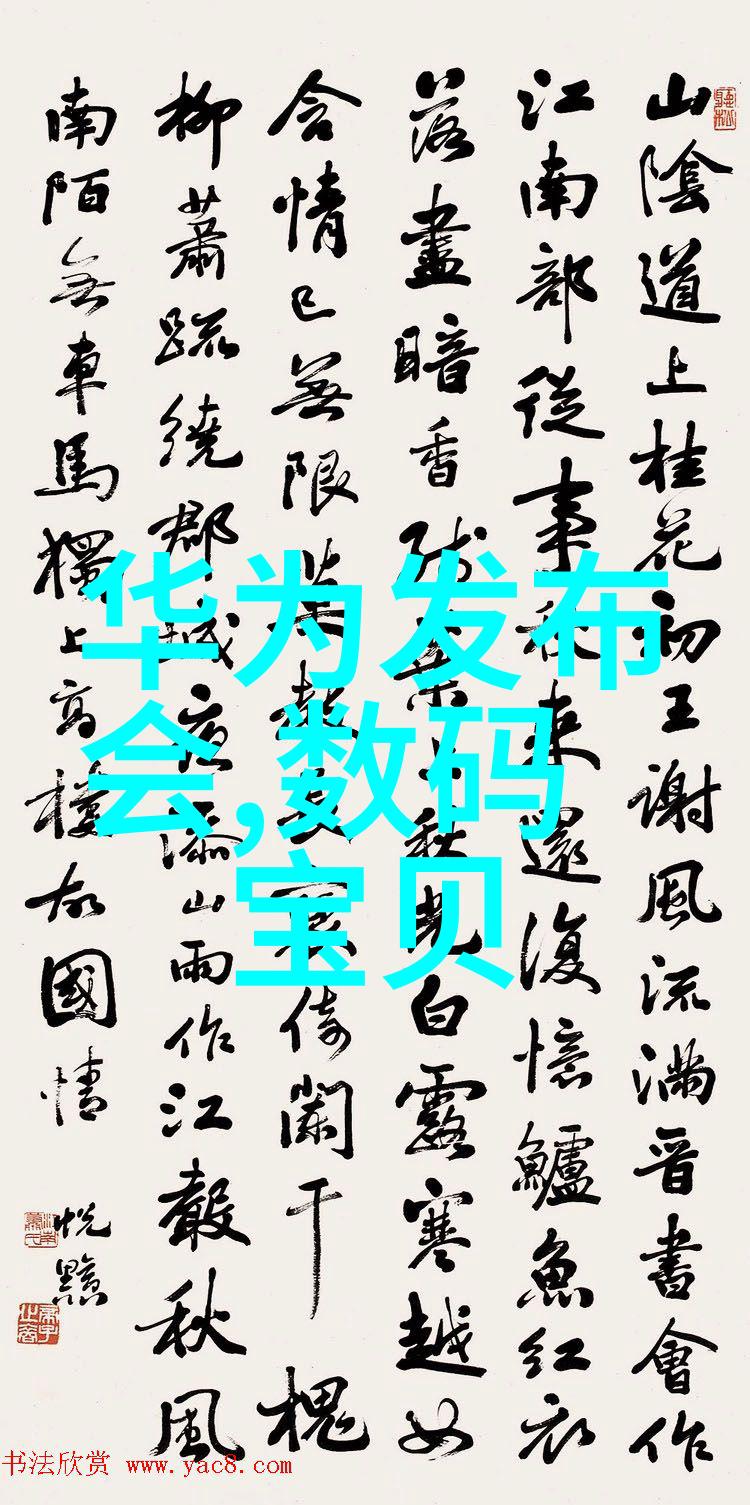 山陰道上桂花初王謝風流滿晉書會作
江南部從事秋來還復憶鱸魚紅衣
落盡暗香殘葉上秋光白露寒越女
含情已無限莫教長袖倚闌干槐
柳蕭疏繞郡城夜添山雨作江聲秋風
南陌無車馬獨上高樓故國情
华为发布
会,数码
宝贝
书法欣赏 www.yac8.com